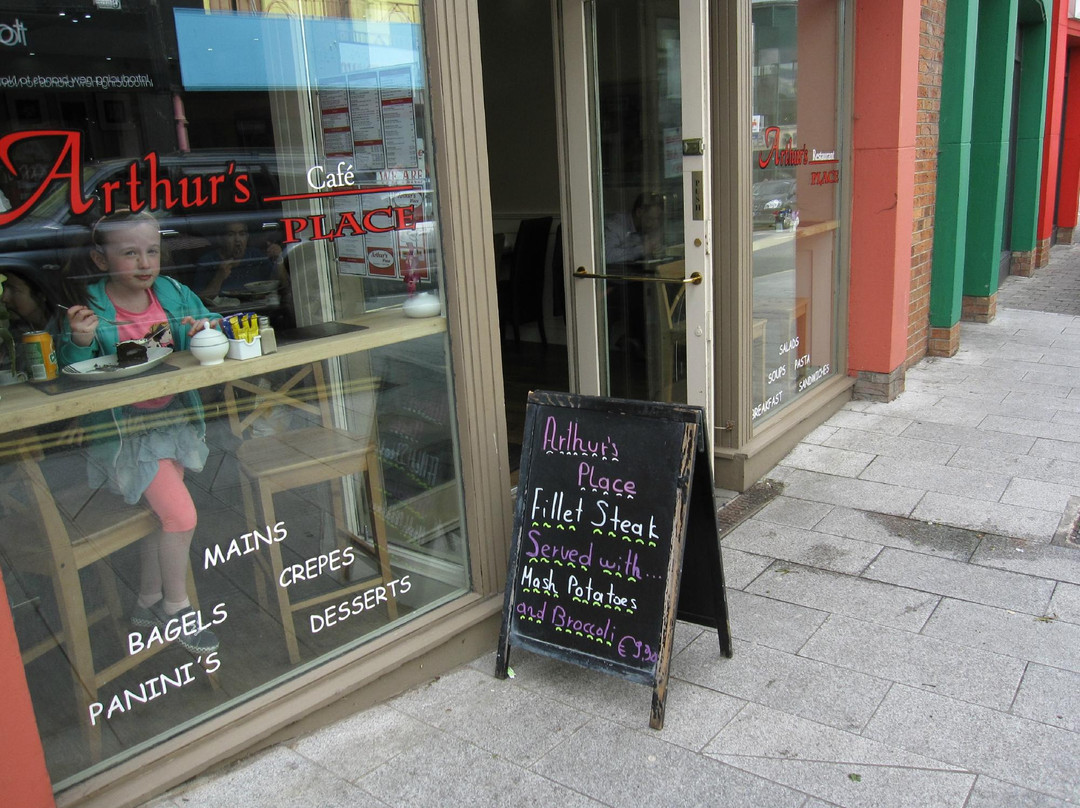 Arthur's
Café
PLACE
WE ARE
MAINS
CREPES
DESSERTS
BAGELS
PANINI'S
Arthur's
Place
Fillet Steak
Served with...
Mash Potatoes
and Broccoli
Arthur's
Restaurant
PLACE
SALADS
SOUPS PASTA
BREAKFAST SANDWICHES